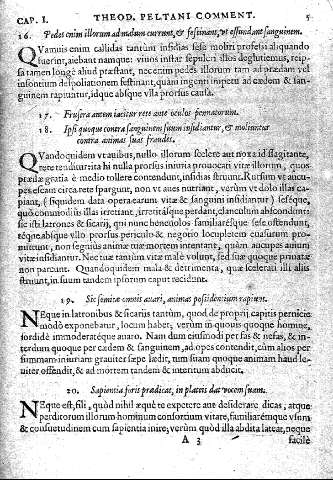 CAP. I. THEOD. PELTANI COMMENT. 5
16. Pedes enim illorum ad malum currunt, & festinant, ut effundant sanguinem.
QVamuis enim callidas tantùm insidias sese moliri professi aliquando
fuerint, aiebant namque: viuos instar sepulcri illos deglutiemus, reip-
sa tamen longè aliud præstant, nec enim pedes illorum tam ad prædam vel
insontium despoliationem festinant, quàm ingenti impetu ad cædem & san-
guinem rapiuntur, idque absque vlla prorsus causa.
17. Frustra autem iacitur rete ante oculos pennatorum.
18. Ipsi quoque contra sanguinem suum insidiantur, & moliuntur
contra animas suas fraudes.
QVandoquidem vt auibus, nullo illorum scelere aut noxa id flagitante,
rete tenditur: ita hi nulla prorsus iniuria prouocati vitæ illorum, quos
prædæ gratia è medio tollere contendunt, insidias struunt. Rursum vt aucu-
pes escam circa rete spargunt, non vt aues nutriant, verùm vt dolo illas ca-
piant, (siquidem data opera earum vitæ & sanguini insidiantur) seseque,
quò commodiùs illas irretiant, irretitasque perdant, clanculum abscondunt:
sic isti latrones & sicarij, qui nunc beneuolos familiaresque sese ostendunt,
téque absque vllo prorsus periculo & negotio locupletem euasurum pro-
mittunt, non segniùs animæ tuæ mortem intentant, quàm aucupes auium
vitæ insidiantur. Nec tuæ tantùm vitæ malè volunt, sed suæ quoque priuatæ
non parcunt. Quandoquidem mala & detrimenta, quæ scelerati illi aliis
struunt, in suum tandem ipsorum caput recidunt.
19. Sic semitæ omnis auari, animas possidentium rapiunt.
NEque in latronibus & sicariis tantùm, quod de proprij capitis pernicie
modò exponebatur, locum habet, verùm in quouis quoque homine,
sordidè immoderatéque auaro. Nam dum eiusmodi per fas & nefas, & in-
terdum quoque per cædem & sanguinem, ad opes contendit, cùm alios per
summam iniuriam grauiter sæpe lædit, tum suam quoque animam haud le-
uiter offendit, & ad mortem tandem & interitum abducit.
20. Sapientia foris prædicat, in plateis dat vocem suam.
NEque est, fili, quòd nihil æquè te expetere aut desiderare dicas, atque
perditorum illorum hominum consortium vitare, familiaremque vsum
& consuetudinem cum sapientia inire, verùm quòd illa abdita lateat, neque
A 3 facilè